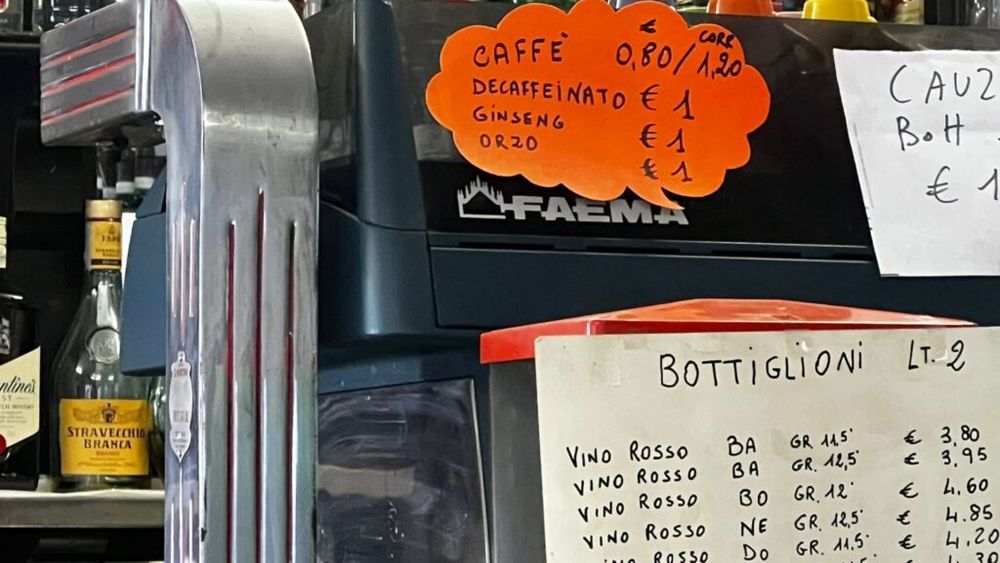 € CORR
CAFFÈ 0,80/1,20
DECAFFEINATO € 1
GINSENG € 1
ORZO € 1
FAEMA
CAUZ
BOTT
€ 1
BOTTIGLIONI LT. 2
VINO ROSSO BA GR 11,5° € 3,80
VINO ROSSO BA GR. 12,5° € 3,95
VINO ROSSO BO GR. 12° € 4,60
VINO ROSSO NE GR. 12,5° € 4,85
VINO ROSSO DO GR. 11,5° € 4,20
STRAVECCHIO
BRANCA
BRANDY